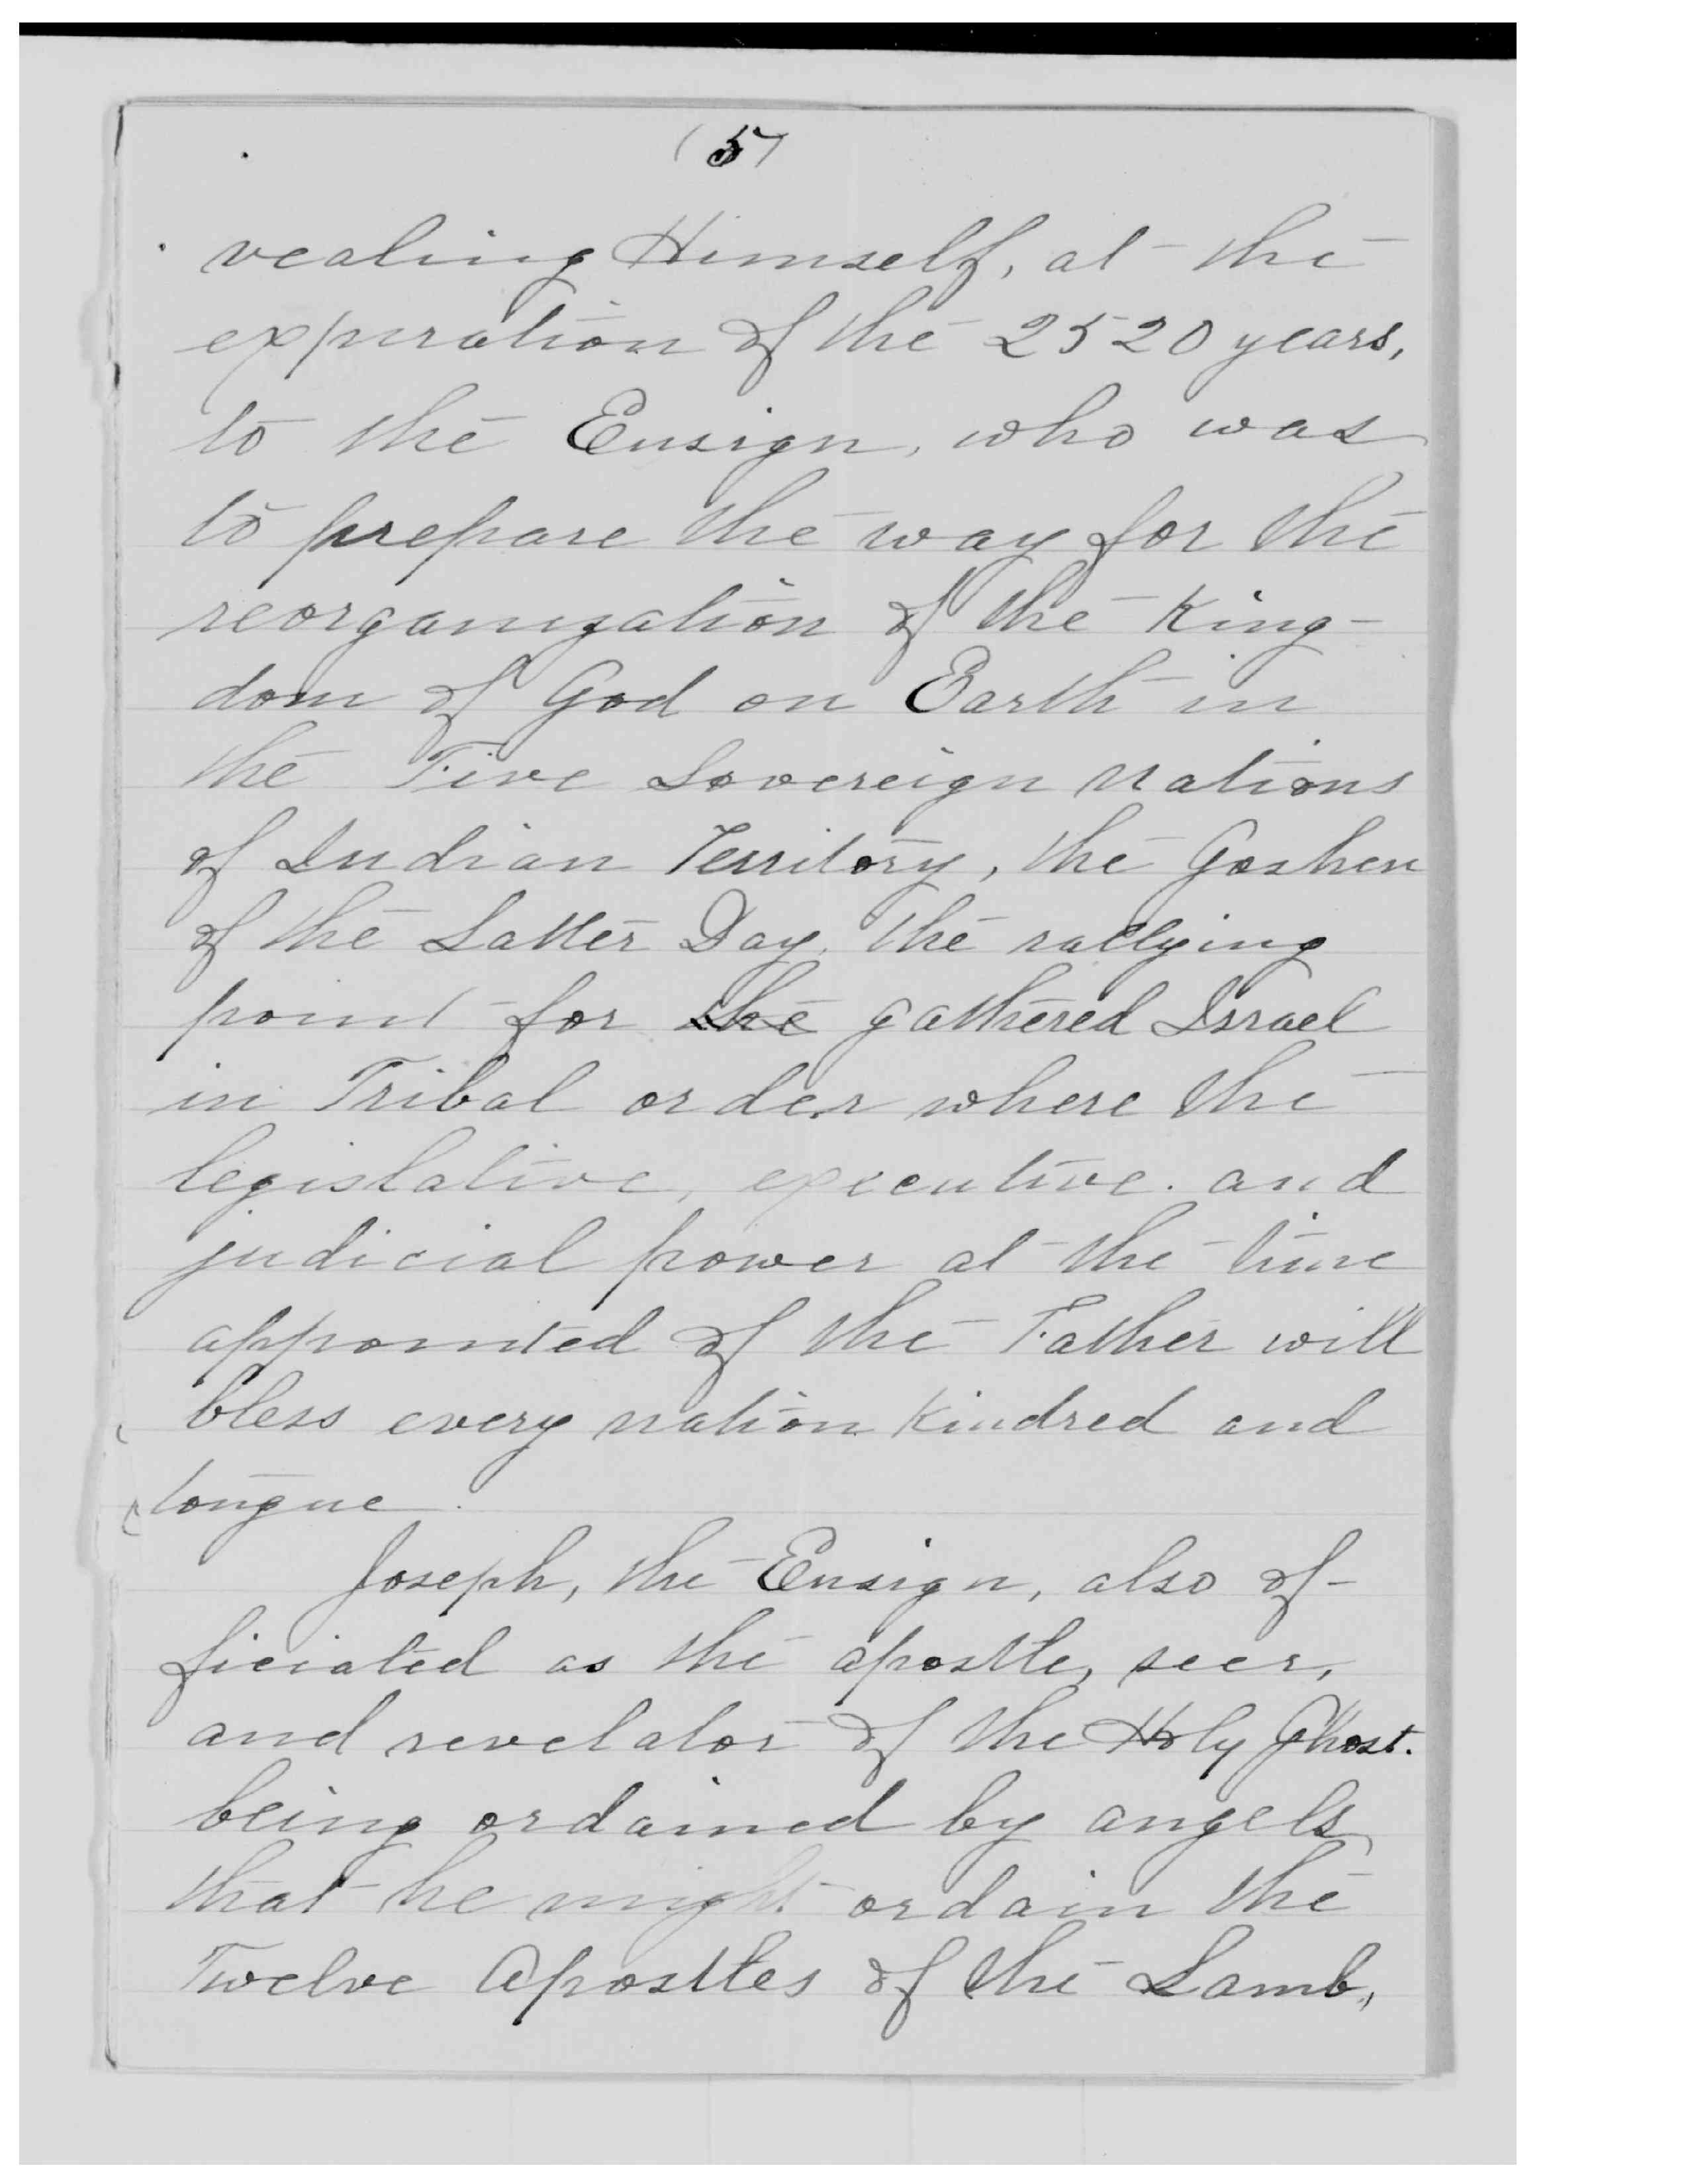 (5)
vealing Himself, at the
expiration of the 2520 years,
to the Ensign, who was
to prepare the way for the
reorganization of the King-
dom of God on Earth in
the Five Sovereign nations
of Indian Territory, the Goshen
of the Latter Day, the rallying
point for the gathered Israel
in Tribal order where the
legislative, executive. and
judicial power at the time
appointed of the Father will
bless every nation kindred and
tongue.
Joseph, the Ensign, also of-
ficiated as the apostle, seer,
and revelator of the Holy Ghost.
being ordained by angels
that he might ordain the
Twelve Apostles of the Lamb,